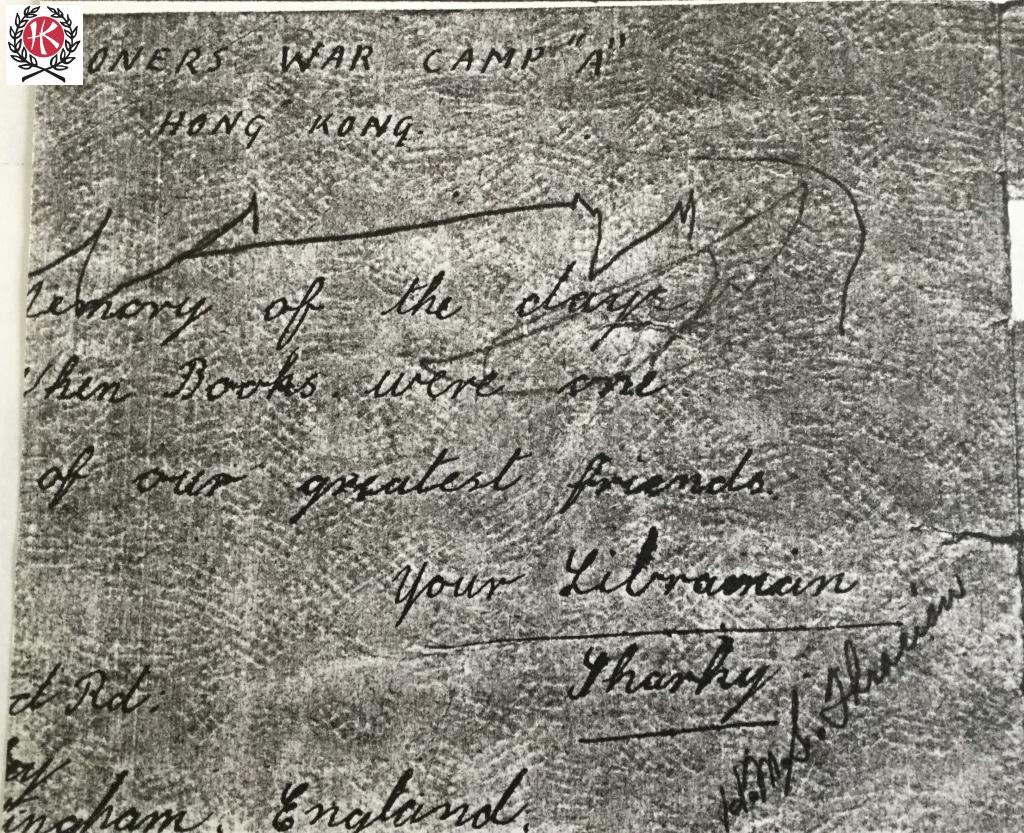 HK
ONERS WAR CAMP "A"
HONG KONG.
Memory of the days
When Books were one
of our greatest friends.
Your Librarian
Sharky.
ct Rd.
H.M.S. Thracian
ingham, England.